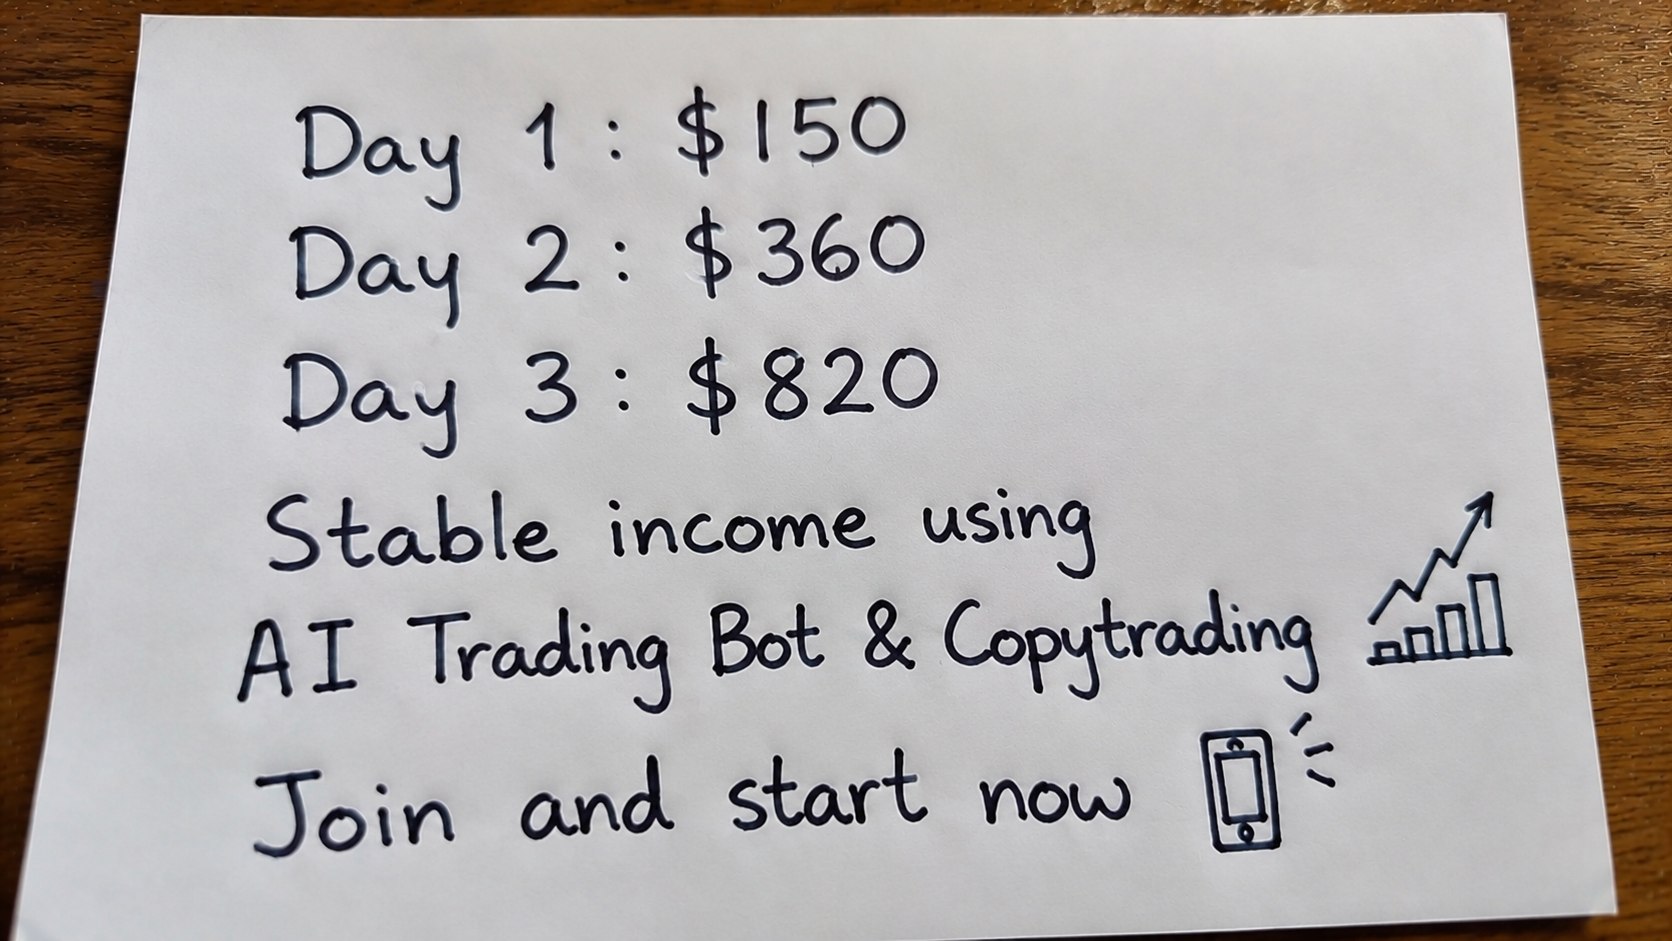 Day 1 : $150
Day 2 : $360
Day 3 : $820
Stable income using
AI Trading Bot & Copytrading
Join and start now